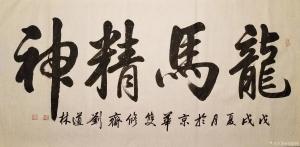 龍馬精神
戊戌夏月於京華雙修齋劉道林